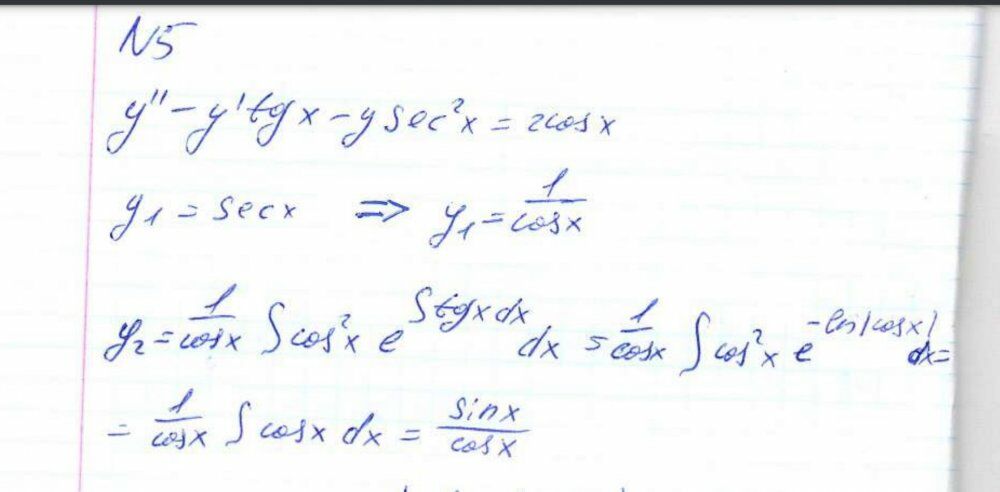 N5
y'' - y' tg x - y sec²x = 2cosx
y₁ = secx ⇒ y₁ = 1/cosx
y₂ = 1/cosx ∫cos²x e^(∫tgxdx) dx = 1/cosx ∫cos²x e^(-ln|cosx|) dx =
= 1/cosx ∫cosx dx = sinx/cosx